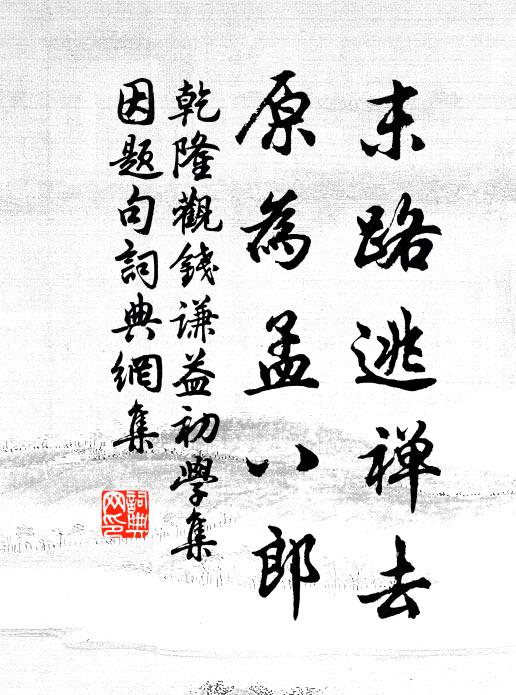 末路逃禅去
原為孟八郎
乾隆觀錢谦益初學集
因題句詞典網集
詞典
网印